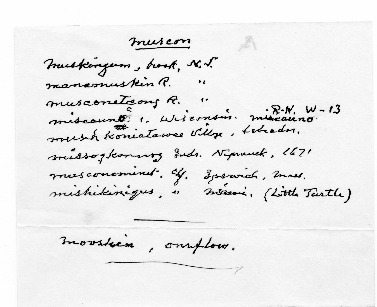 muscon
Muskingum, brook, N.J.
manamuskin R. "
musconetcong R. "
R.N. W-13
miscauno i. Wisconsin. miscauno
mush Koniatawee Villge,
missogkonnog Inds. Nipmuck, 1671
musconominet. Cf. Ipswich, Mass.
mishikinigus, " Miami. (Little Turtle)
mooskin, overflow.